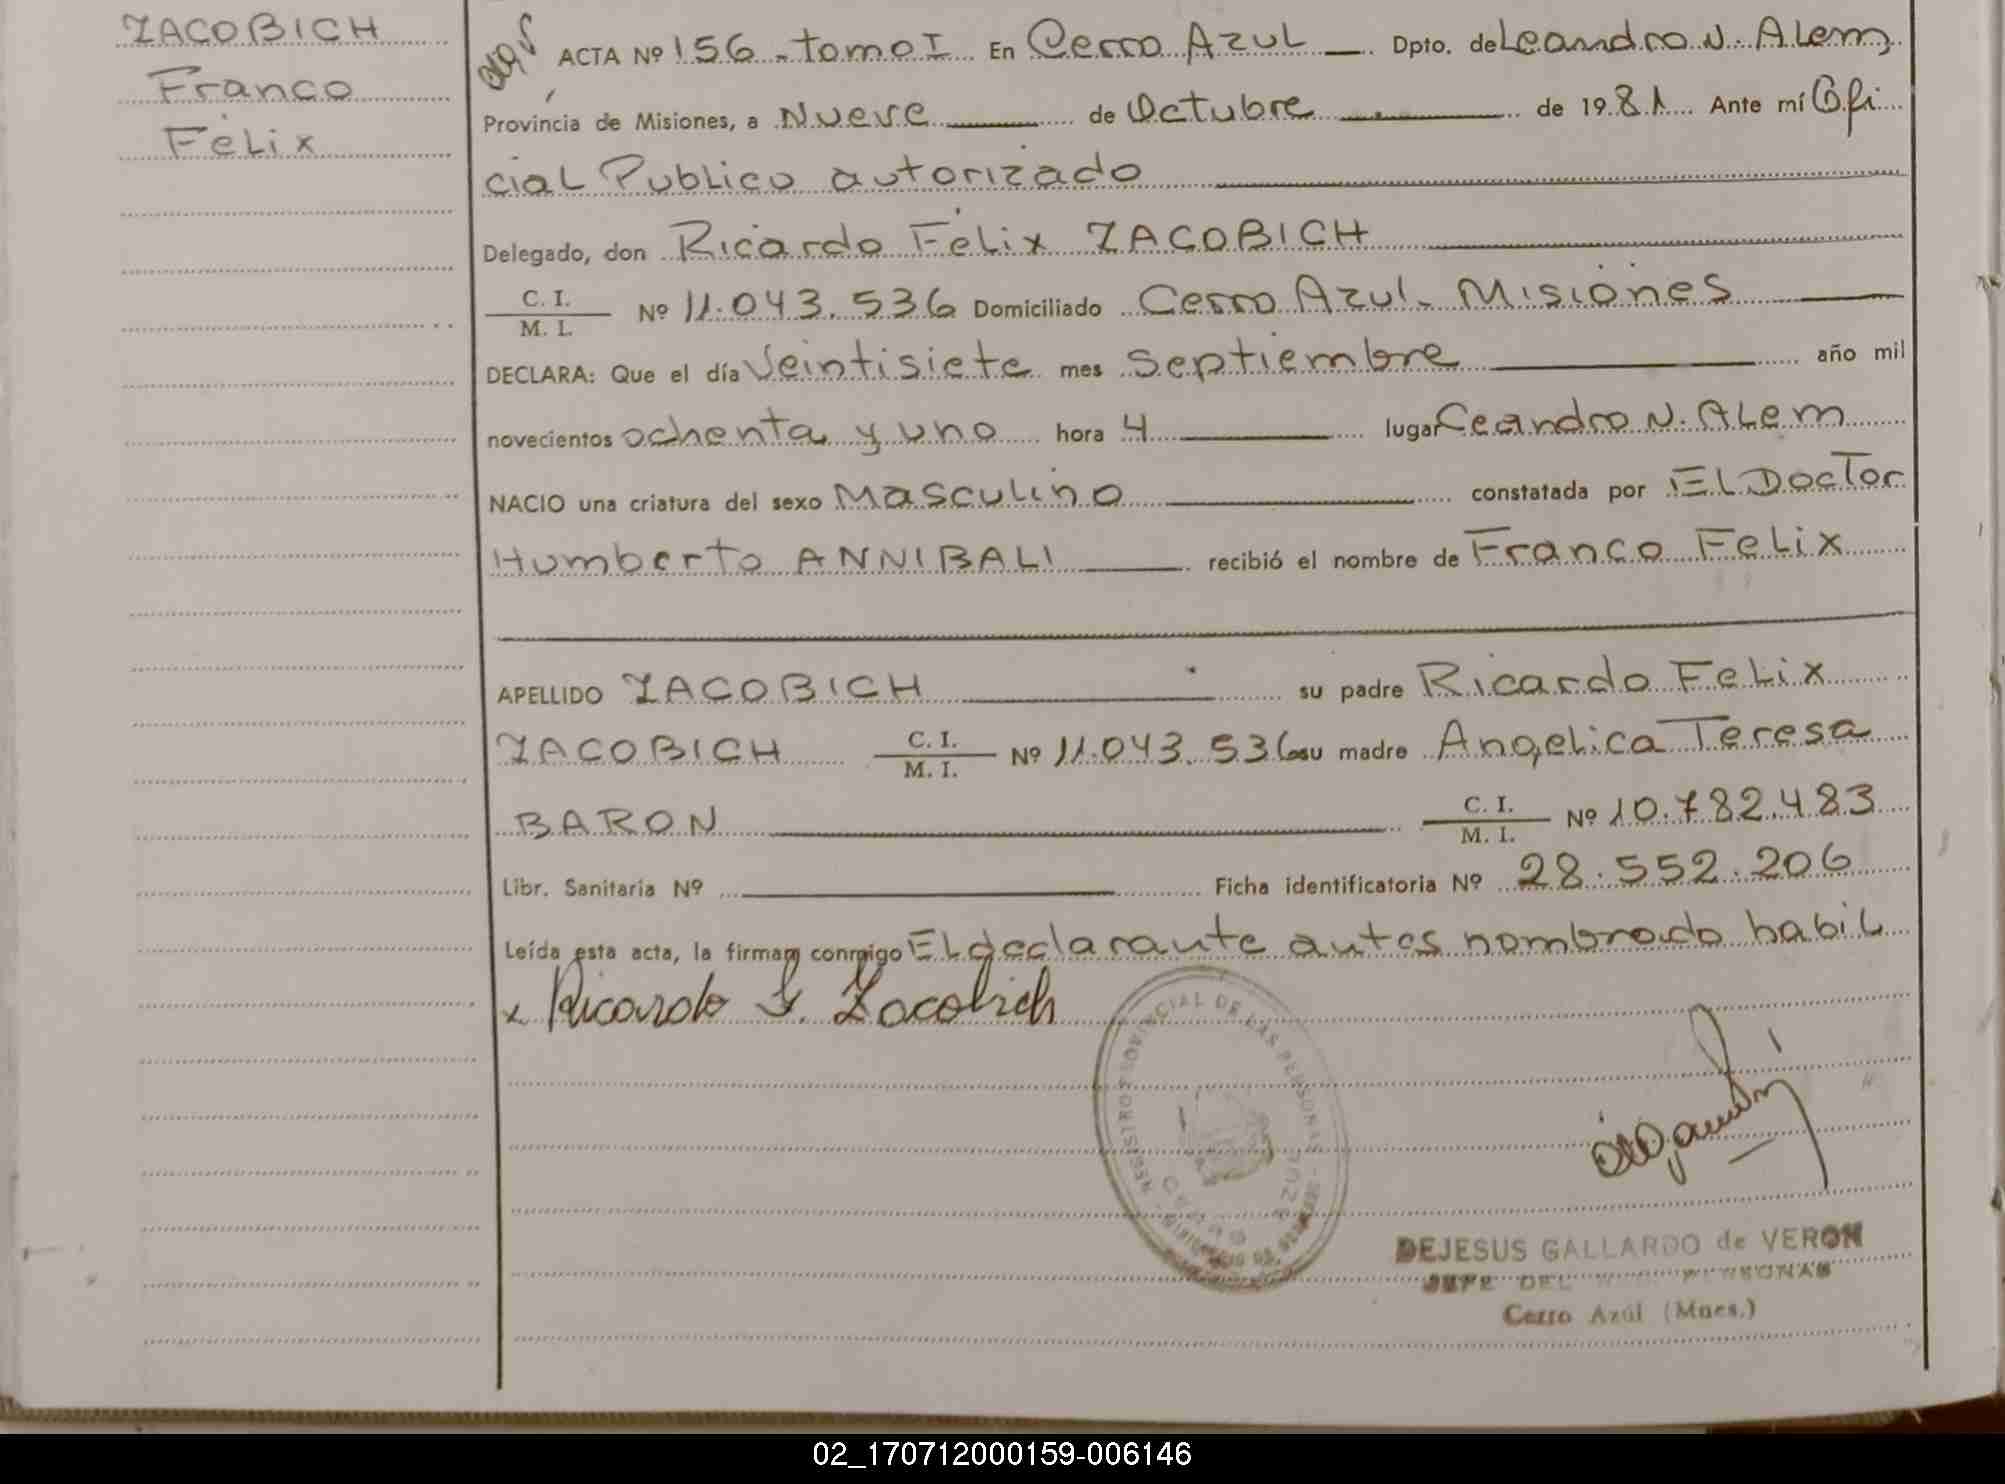 ZACOBICH
Franco
Félix
ACTA Nº 156 - tomo I En Cerro Azul Dpto. de Leandro N. Alem
Provincia de Misiones, a Nueve de Octubre de 1981 Ante mí Ofi
cial Publico autorizado
Delegado, don Ricardo Félix ZACOBICH
C. I.
M. I. Nº 11.043.536 Domiciliado Cerro Azul - Misiones
DECLARA: Que el día Veintisiete mes Septiembre año mil
novecientos ochenta y uno hora 4 lugar Leandro N. Alem
NACIO una criatura del sexo Masculino constatada por El Doctor
Humberto ANNIBALI recibió el nombre de Franco Felix
APELLIDO ZACOBICH su padre Ricardo Felix
ZACOBICH C. I.
M. I. Nº 11.043.536 su madre Angelica Teresa
BARON C. I.
M. I. Nº 10.782.483
Libr. Sanitaria Nº Ficha identificatoria Nº 28.552.206
Leída esta acta, la firman conmigo El declarante antes nombrado habil
x Ricardo F. Zacobich
REGISTRO PROVINCIAL DE LAS PERSONAS
CERRO AZUL
DEJESUS GALLARDO de VERON
JEFE DEL PERSONAS
Cerro Azúl (Mnes.)
02_170712000159-006146